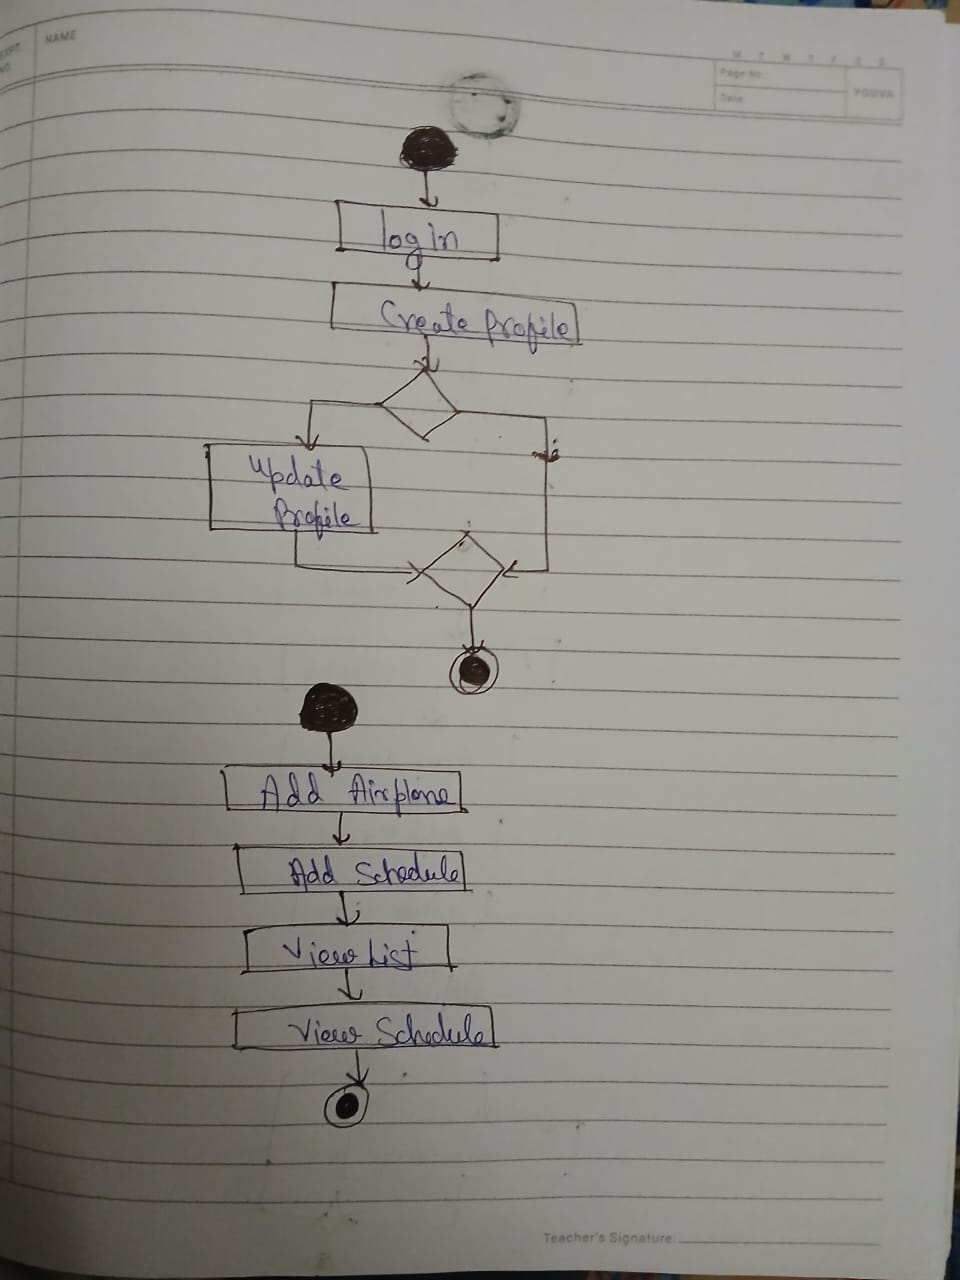 EXPT.
NO.
NAME
M T W T F S S
Page No.:
Date:
YOUVA
login
Create Profile
Update
Profile
Add Airplane
Add Schedule
View List
View Schedule
Teacher's Signature: